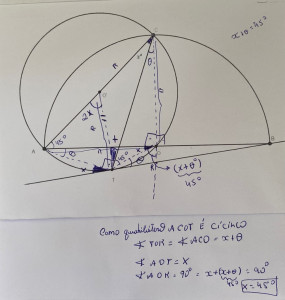 x+θ=45°
θ
R
2x
R
x
45°
θ
A
B
T
K
(x+θ)
45°
Como quadrilátero ACOT É CÍCLICO
∡ TOK = ∡ ACO = x+θ
∡ AOT = X
∡ AOK = 90° = x+(x+θ) = 90°
45°
x=45°